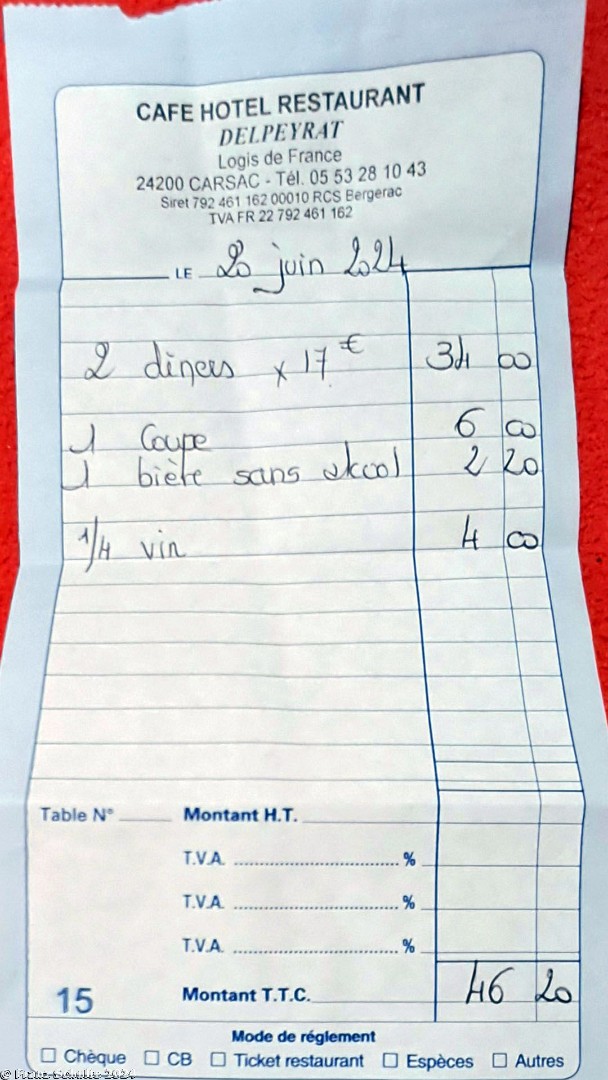 CAFE HOTEL RESTAURANT
DELPEYRAT
Logis de France
24200 CARSAC - Tél. 05 53 28 10 43
Siret 792 461 162 00010 RCS Bergerac
TVA FR 22 792 461 162
LE 20 juin 2024
2 diners x 17 € 34 00
1 Coupe 6 00
1 bière sans alcool 2 20
1/4 vin 4 00
Table N° Montant H.T.
T.V.A. %
T.V.A. %
T.V.A. %
15 Montant T.T.C. 46 20
Mode de réglement
Chèque CB Ticket restaurant Espèces Autres